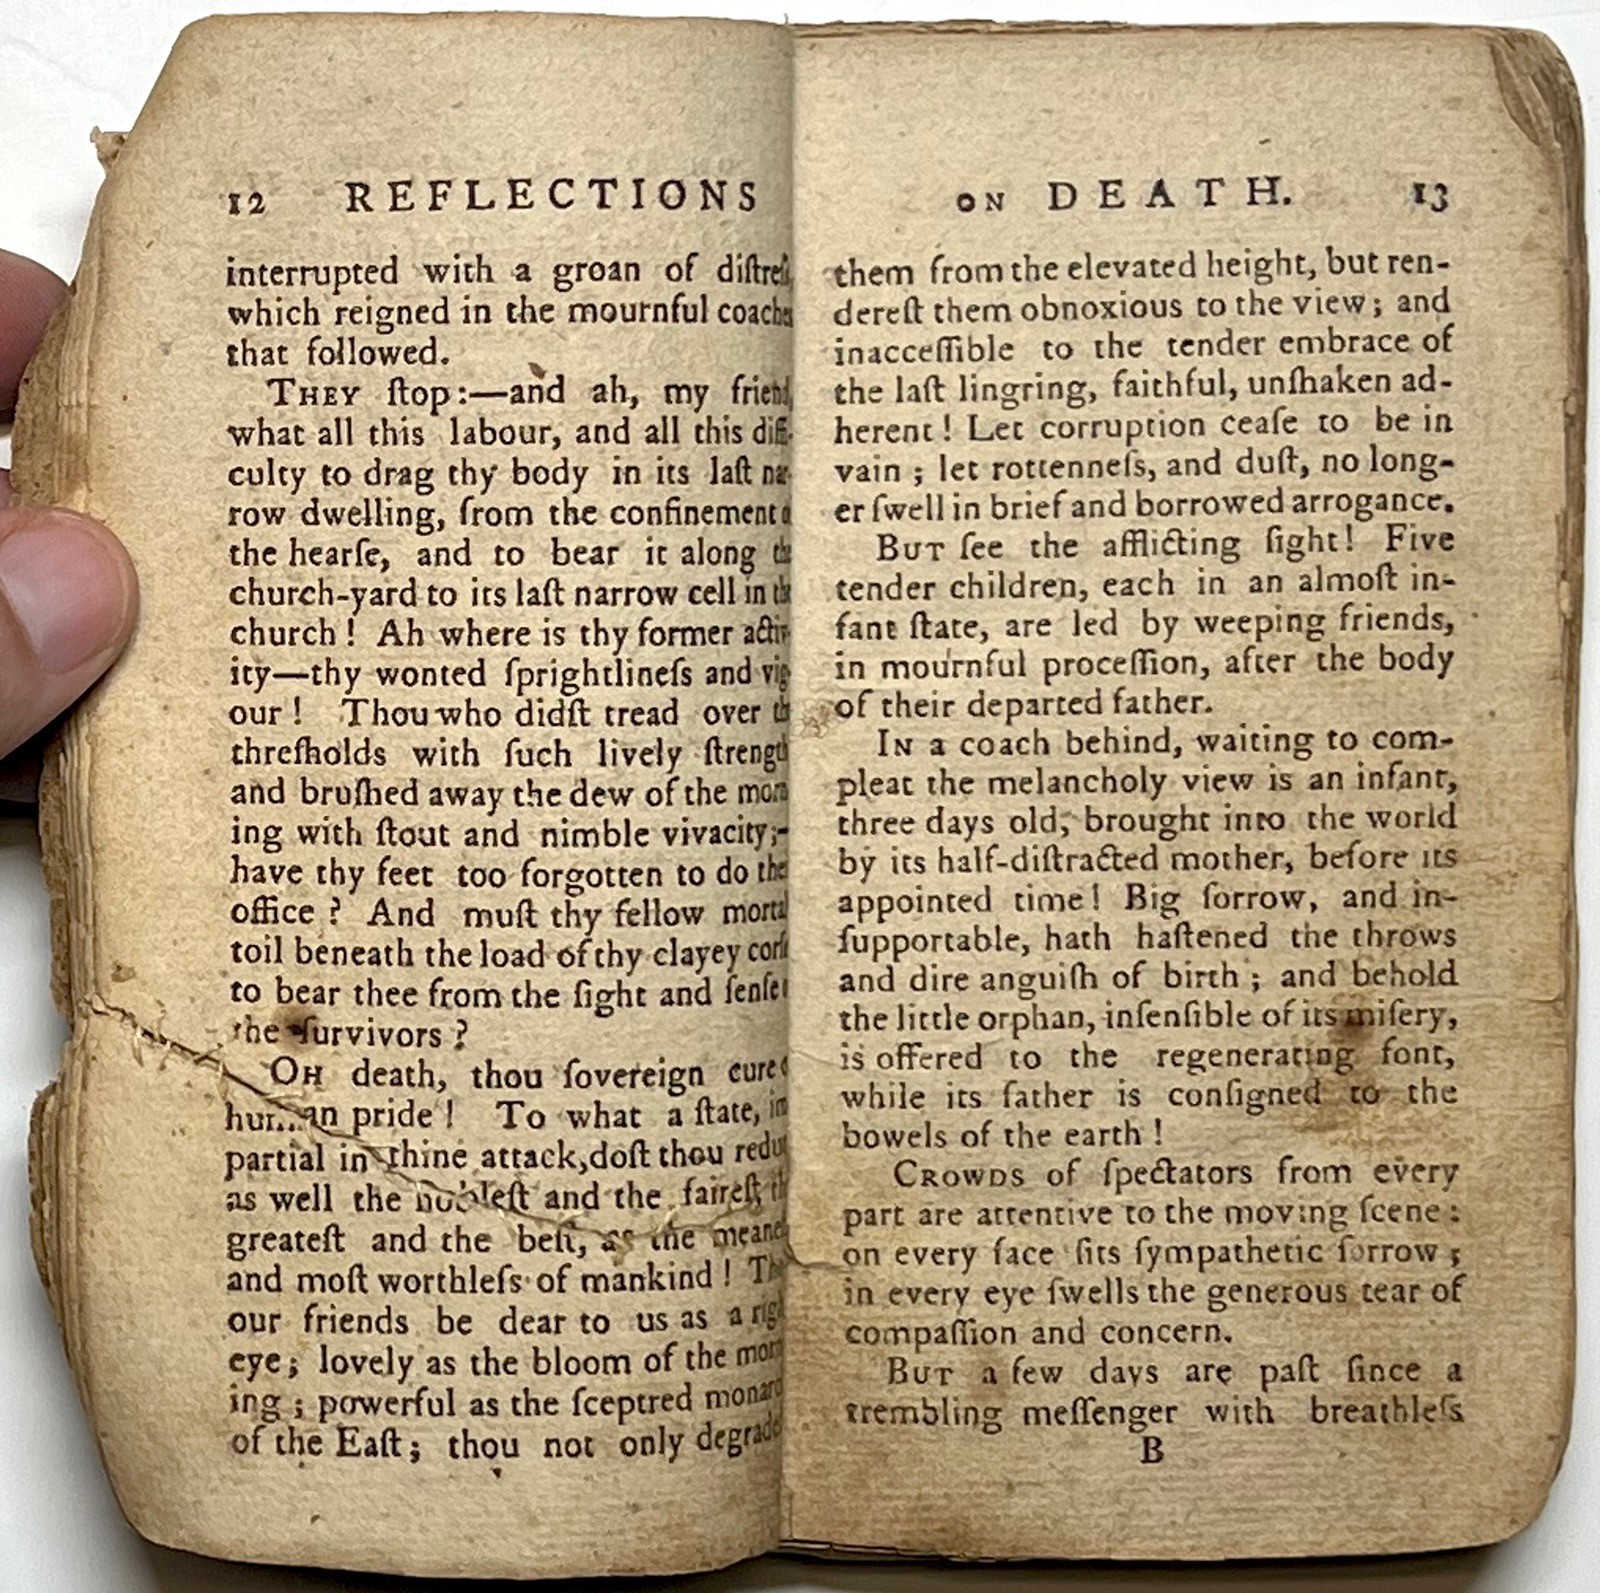 12 REFLECTIONS
interrupted with a groan of diſtreſs
which reigned in the mournful coaches
that followed.
THEY ſtop:—and ah, my friend
what all this labour, and all this diffi-
culty to drag thy body in its laſt nar-
row dwelling, from the confinement
the hearſe, and to bear it along the
church-yard to its laſt narrow cell in the
church! Ah where is thy former activ-
ity—thy wonted ſprightlineſs and vig-
our! Thou who didſt tread over the
threſholds with ſuch lively ſtrength
and bruſhed away the dew of the morn-
ing with ſtout and nimble vivacity;-
have thy feet too forgotten to do their
office? And muſt thy fellow mortal
toil beneath the load of thy clayey corſe
to bear thee from the ſight and ſenſe
the ſurvivors?
OH death, thou ſovereign cure
human pride! To what a ſtate, im-
partial in thine attack, doſt thou reduce
as well the nobleſt and the faireſt, the
greateſt and the beſt, as the meaneſt
and moſt worthleſs of mankind!
our friends be dear to us as a right
eye; lovely as the bloom of the morn-
ing; powerful as the ſceptred monarch
of the Eaſt; thou not only degradeſt
ON DEATH. 13
them from the elevated height, but ren-
dereſt them obnoxious to the view; and
inacceſſible to the tender embrace of
the laſt lingring, faithful, unſhaken ad-
herent! Let corruption ceaſe to be in
vain; let rottenneſs, and duſt, no long-
er ſwell in brief and borrowed arrogance.
BUT ſee the afflicting ſight! Five
tender children, each in an almoſt in-
fant ſtate, are led by weeping friends,
in mournful proceſſion, after the body
of their departed father.
IN a coach behind, waiting to com-
pleat the melancholy view is an infant,
three days old, brought into the world
by its half-diſtracted mother, before its
appointed time! Big ſorrow, and in-
ſupportable, hath haſtened the throws
and dire anguiſh of birth; and behold
the little orphan, inſenſible of its miſery,
is offered to the regenerating font,
while its father is conſigned to the
bowels of the earth!
CROWDS of ſpectators from every
part are attentive to the moving ſcene:
on every face ſits ſympathetic ſorrow;
in every eye ſwells the generous tear of
compaſſion and concern.
BUT a few days are paſt ſince a
trembling meſſenger with breathleſs
B